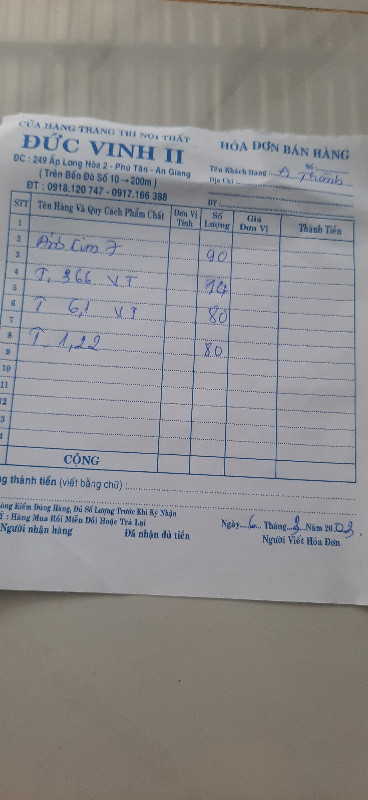 CỬA HÀNG TRANG TRÍ NỘI THẤT
ĐỨC VINH II
ĐC : 249 Ấp Long Hòa 2 - Phú Tân - An Giang
( Trên Bến Đò Số 10 → 200m )
ĐT : 0918.120 747 - 0917.166 388
HÓA ĐƠN BÁN HÀNG
Số :
Tên Khách Hàng : A Thành
Địa Chỉ :
ĐT :
STT Tên Hàng Và Quy Cách Phẩm Chất Đơn Vị Tính Số Lượng Giá Đơn Vị Thành Tiền
1
2
3 90
4 T. 366 VT
5 74
6 T 6,1 VT
7 80
8 T. 1,22
9 80
10
11
12
3
4
CỘNG
g thành tiền (viết bằng chữ) :
òng Kiểm Đúng Hàng, Đủ Số Lượng Trước Khi Ký Nhận
: Hàng Mua Rồi Miễn Đổi Hoặc Trả Lại
Người nhận hàng Đã nhận đủ tiền
Ngày 6 Tháng 3 Năm 2023
Người Viết Hóa Đơn